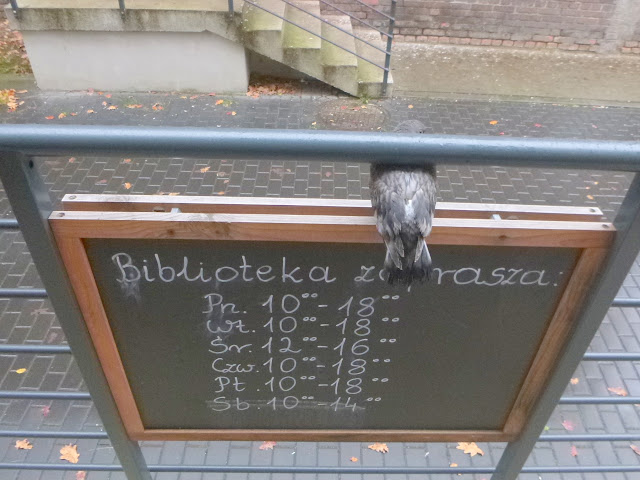 Biblioteka zaprasza:
Pn. 10⁰⁰-18⁰⁰
Wt. 10⁰⁰-18⁰⁰
Śr. 12⁰⁰-16⁰⁰
Czw. 10⁰⁰-18⁰⁰
Pt. 10⁰⁰-18⁰⁰
Sb. 10⁰⁰-14⁰⁰